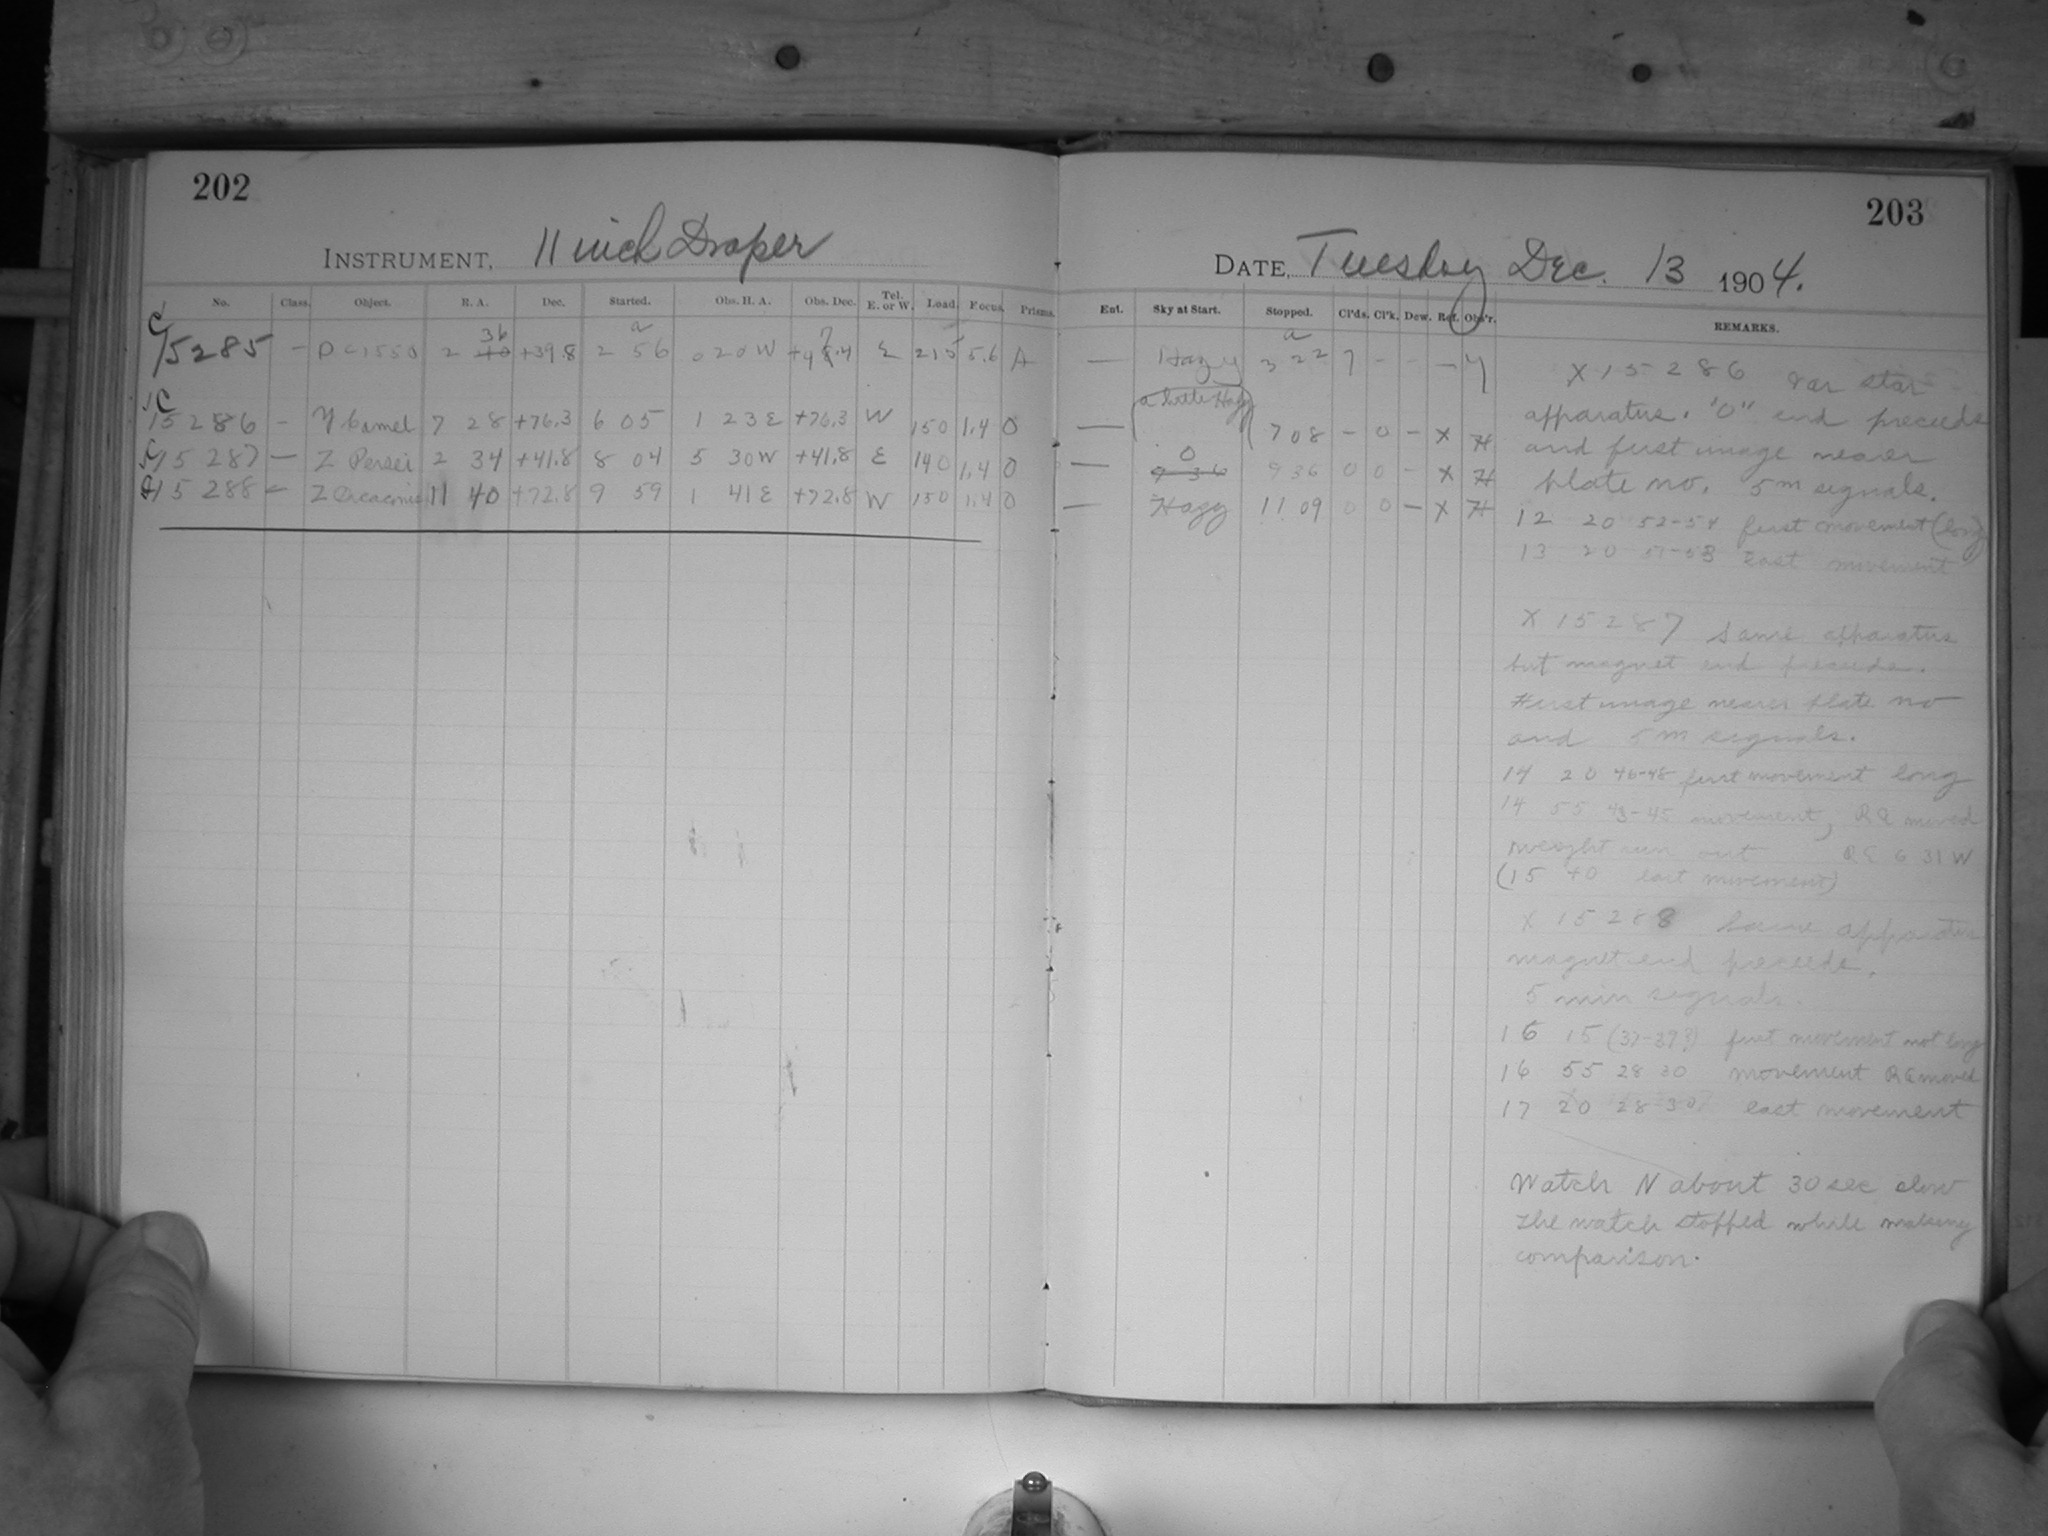 202
INSTRUMENT, 11 inch Draper
No. Class. Object. R. A. Dec. Started. Obs. H. A. Obs. Dec. Tel. E. or W. Load. Focus. Prisms.
15285 – DC1550 2 36 +39.8 2 56 0 20 W E 215 5.6 A
15286 – 7 28 +76.3 6 05 1 23 E +76.3 W 150 1.4 0
15287 – Z Persei 2 34 +41.8 8 04 5 30 W +41.8 E 140 1.4 0
15288 – Z 11 40 +72.8 9 59 1 41 E +72.8 W 150 1.4 0
203
DATE, Tuesday Dec. 13 1904.
Ent. Sky at Start. Stopped. Cl'ds. Cl'k. Dew. Ref. Obs'r. REMARKS.
— Hazy 3 22 7 - - -
— a little Hazy 7 08 - 0 - X H
— 0 9 36 9 36 0 0 - X H
— Hazy 11 09 0 0 - X H
X 15286 var star
apparatus. "0" end preceeds
and first image nearer
plate no. 5m signals.
12 20 52-54 first movement (long)
13 20 last movement
X 15287 same apparatus
but magnet end preceeds.
First image nearer plate no
and 5m signals.
14 20 46-48 first movement long
14 55 43-45 movement, RA moved
weight run out 6 31 W
(15 40 last movement)
X 15288 same apparatus
magnet end preceeds.
5 min signals.
16 15 (37-39?) first movement not long
16 55 28 30 movement RA moved
17 20 28-30 last movement
Watch N about 30 sec slow
The watch stopped while making
comparison.